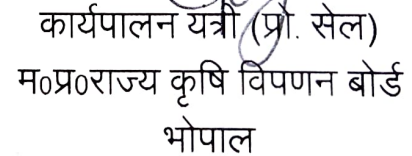 कार्यपालन यत्री (प्रो. सेल)
म०प्र०राज्य कृषि विपणन बोर्ड
भोपाल